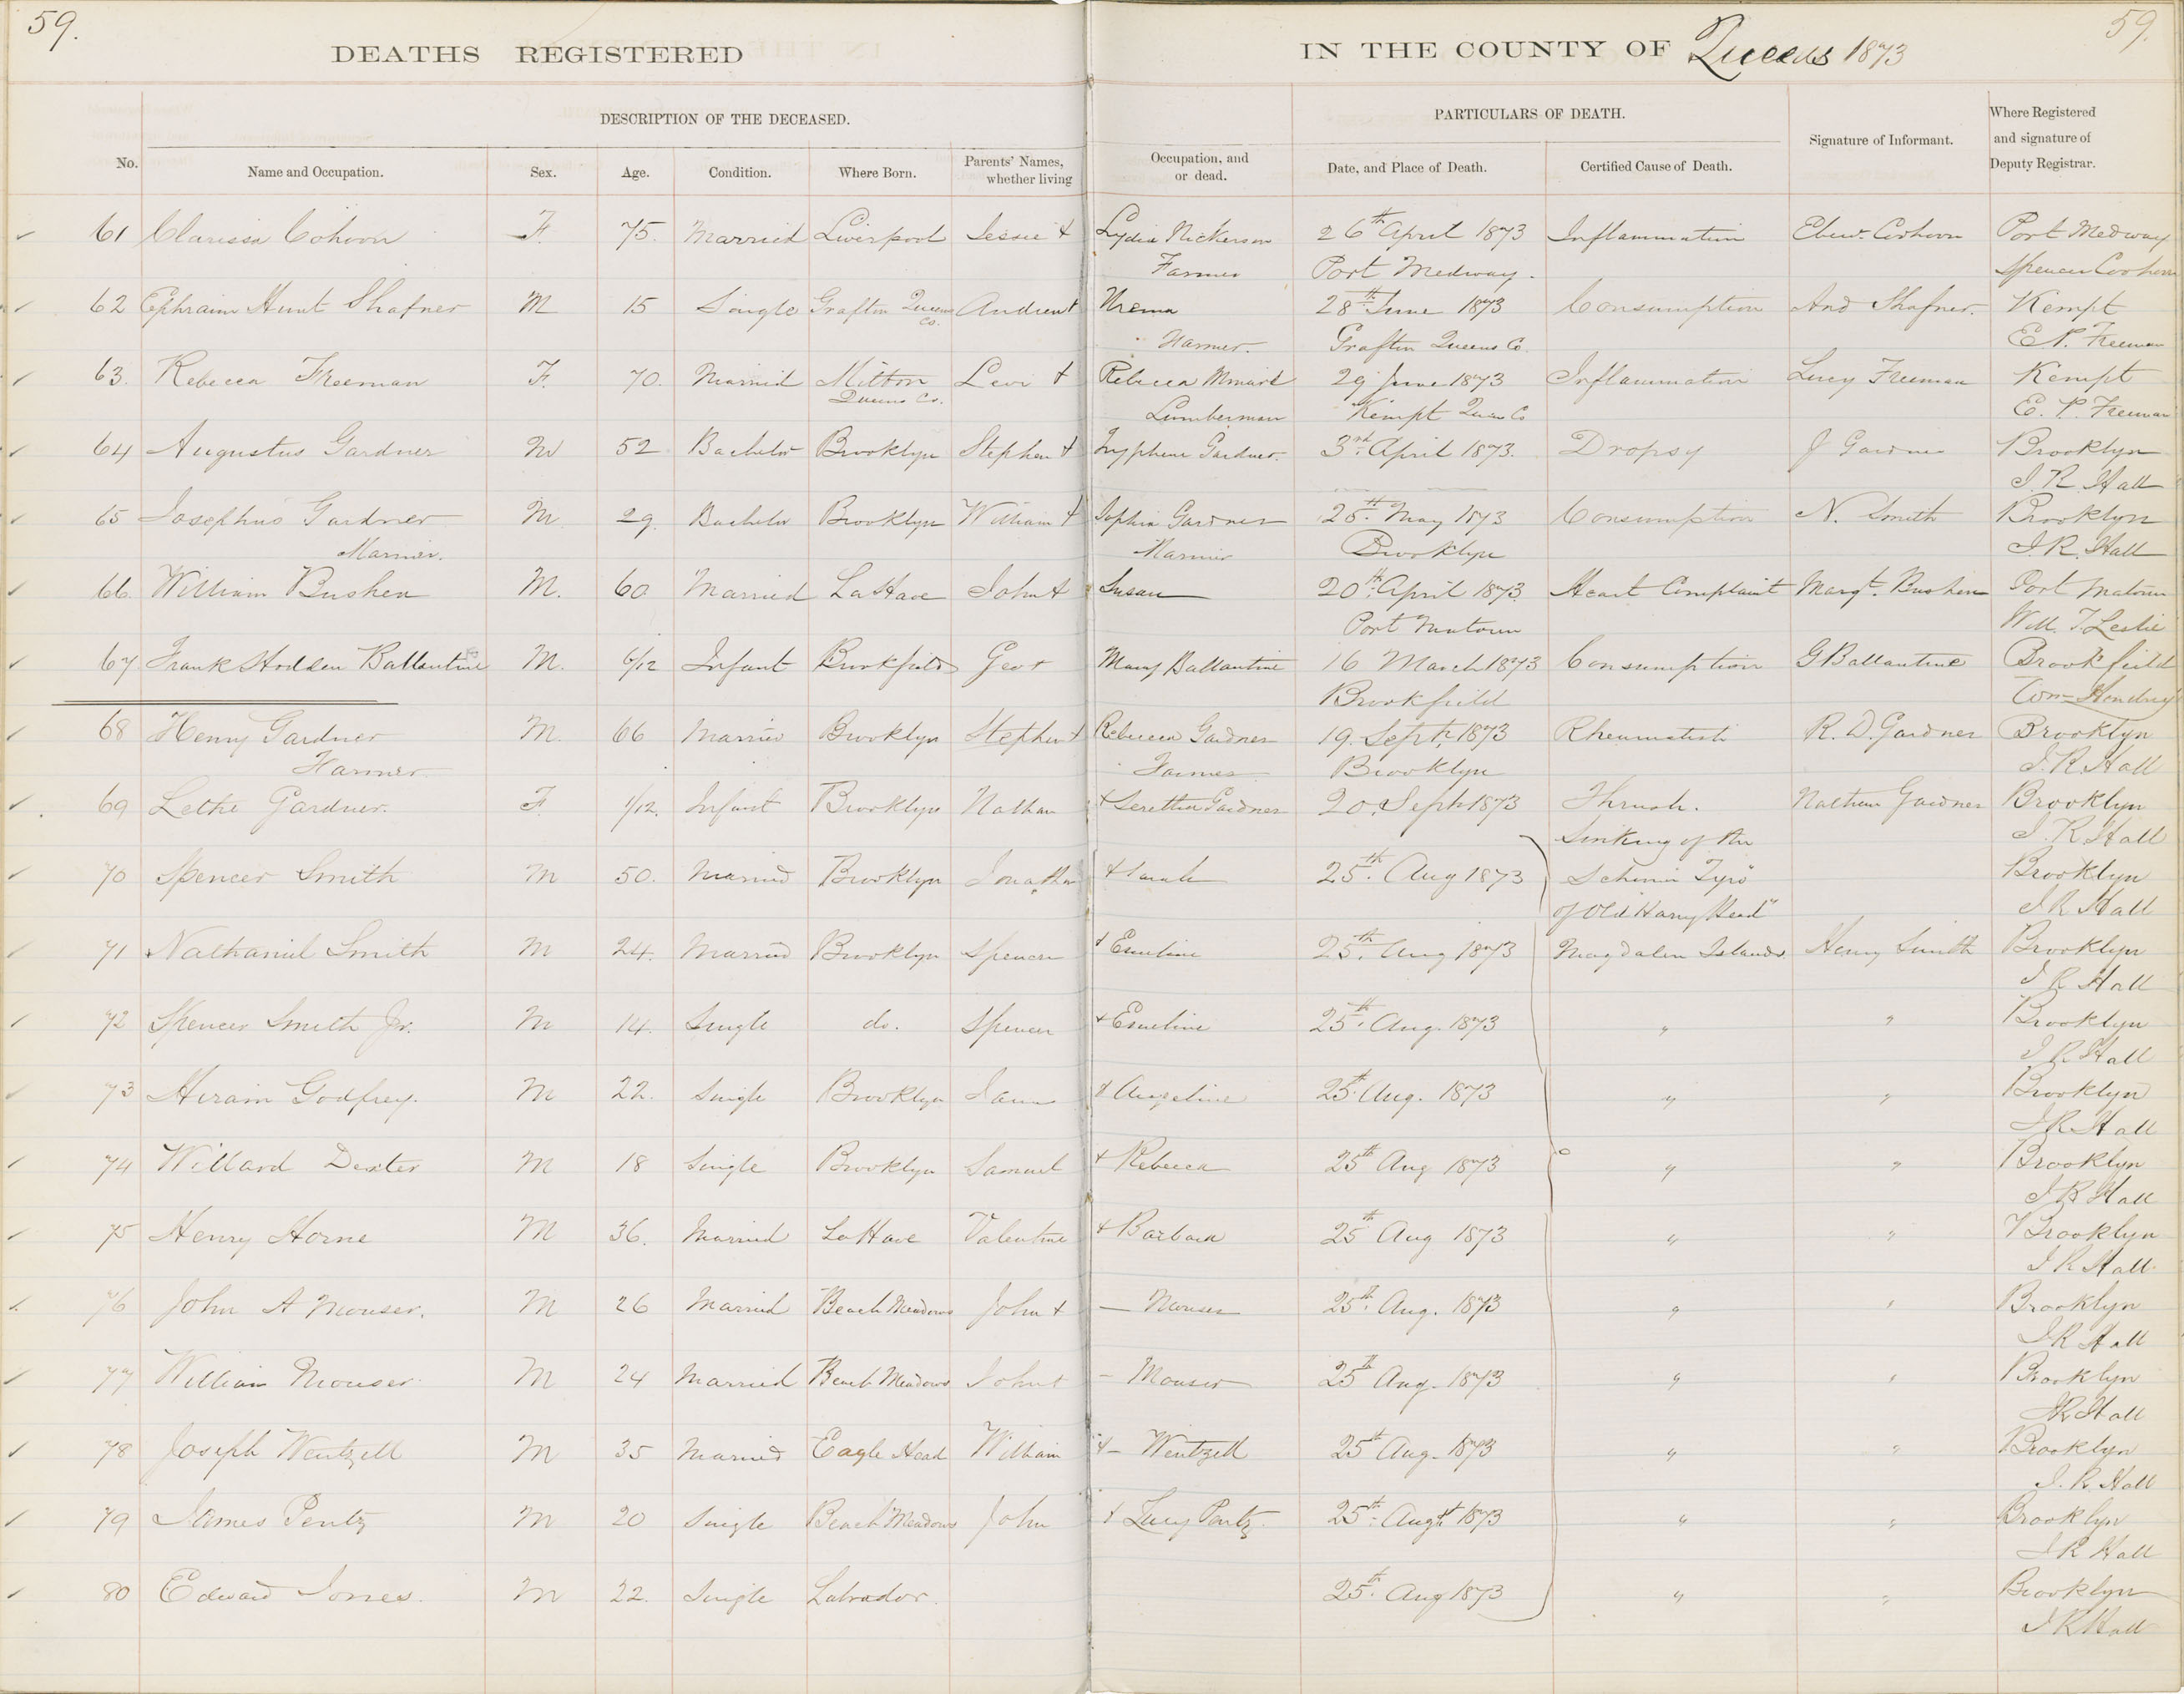 59.
DEATHS REGISTERED IN THE COUNTY OF Queens 1873
59.
DESCRIPTION OF THE DECEASED. PARTICULARS OF DEATH.
No. Name and Occupation. Sex. Age. Condition. Where Born. Parents' Names, whether living Occupation, and or dead. Date, and Place of Death. Certified Cause of Death. Signature of Informant. Where Registered and signature of Deputy Registrar.
61 Clarissa Cohoon F. 75. Married Liverpool Jessie & Lydia Nickerson 26th April 1873 Inflammation Ebenr. Cohoon Port Medway
Farmer Port Medway. Spencer Cohoon
62 Ephraim Hunt Shafner M 15 Single Grafton Queens Co. Andrew & 28th June 1873 Consumption And Shafner. Kempt
Farmer. Grafton Queens Co. E. P. Freeman
63. Rebecca Freeman F. 70. Married Milton Levi & Rebecca Minard 29 June 1873 Inflammation Lucy Freeman Kempt
Queens Co. Lumberman Kempt Queens Co E. P. Freeman
64 Augustus Gardner M 52 Bachelor Brooklyn Stephen & Tryphene Gardner. 3rd April 1873. Dropsy J Gardner Brooklyn
J. R. Hall
65 Josephus Gardner M. 29. Bachelor Brooklyn William & Sophia Gardner 28th May 1873 Consumption N. Smith Brooklyn
Mariner. Mariner Brooklyn J. R. Hall
66. William Bushen M. 60 Married LaHave John & Susan 20th April 1873. Heart Complaint Margt. Bushen Port Matoun
Port Matoun Will. T. Leslie
67 Frank Hodden Ballantine M. 6/12 Infant Brookfield Geo & Mary Ballantine 16 March 1873 Consumption G Ballantine Brookfield
Brookfield Wm Hendry
68 Henry Gardner M. 66 Married Brooklyn Stephen & Rebecca Gardner 19. Sept. 1873 Rheumatish R. D. Gardner Brooklyn
Farmer Farmer Brooklyn J. R. Hall
69 Lethe Gardner. F. 1/12. Infant Brooklyn Nathan & Serettha Gardner 20. Sept 1873 Thrush. Nathan Gardner Brooklyn
Sinking of the J. R. Hall
70 Spencer Smith M 50. Married Brooklyn Jonathan & Sarah 25th Aug 1873 Schnr "Tyro" Brooklyn
of Old Harry Head" J R Hall
71 Nathaniel Smith M 24. Married Brooklyn Spencer & Emeline 25th Aug 1873 Magdalen Islands Henry Smith Brooklyn
J R Hall
72 Spencer Smith Jr. M 14. Single do. Spencer & Emeline 25th Aug. 1873 " " Brooklyn
J R Hall
73 Hiram Godfrey. M 22. Single Brooklyn James & Angeline 25th Aug. 1873 " " Brooklyn
J R Hall
74 Willard Dexter M 18 Single Brooklyn Samuel & Rebecca 25th Aug 1873 " " Brooklyn
J R Hall
75 Henry Horne M 36. Married LaHave Valentine & Barbara 25th Aug 1873 " " Brooklyn
J R Hall
76 John A Mouser. M 26 Married Beach Meadows John & — Mouser 25th Aug. 1873 " " Brooklyn
J R Hall
77 William Mouser M 24 Married Beach Meadows John & – Mouser 25th Aug. 1873 " " Brooklyn
J R Hall
78 Joseph Wentzell M 35 Married Eagle Head William & – Wentzell 25th Aug. 1873 " " Brooklyn
J. R. Hall
79 James Pentz M 20 Single Beach Meadows John & Lucy Pentz. 25th Augt 1873 " " Brooklyn
J R Hall
80 Edward Jones. M 22. Single Labrador. 25th Aug 1873 " " Brooklyn
J R Hall